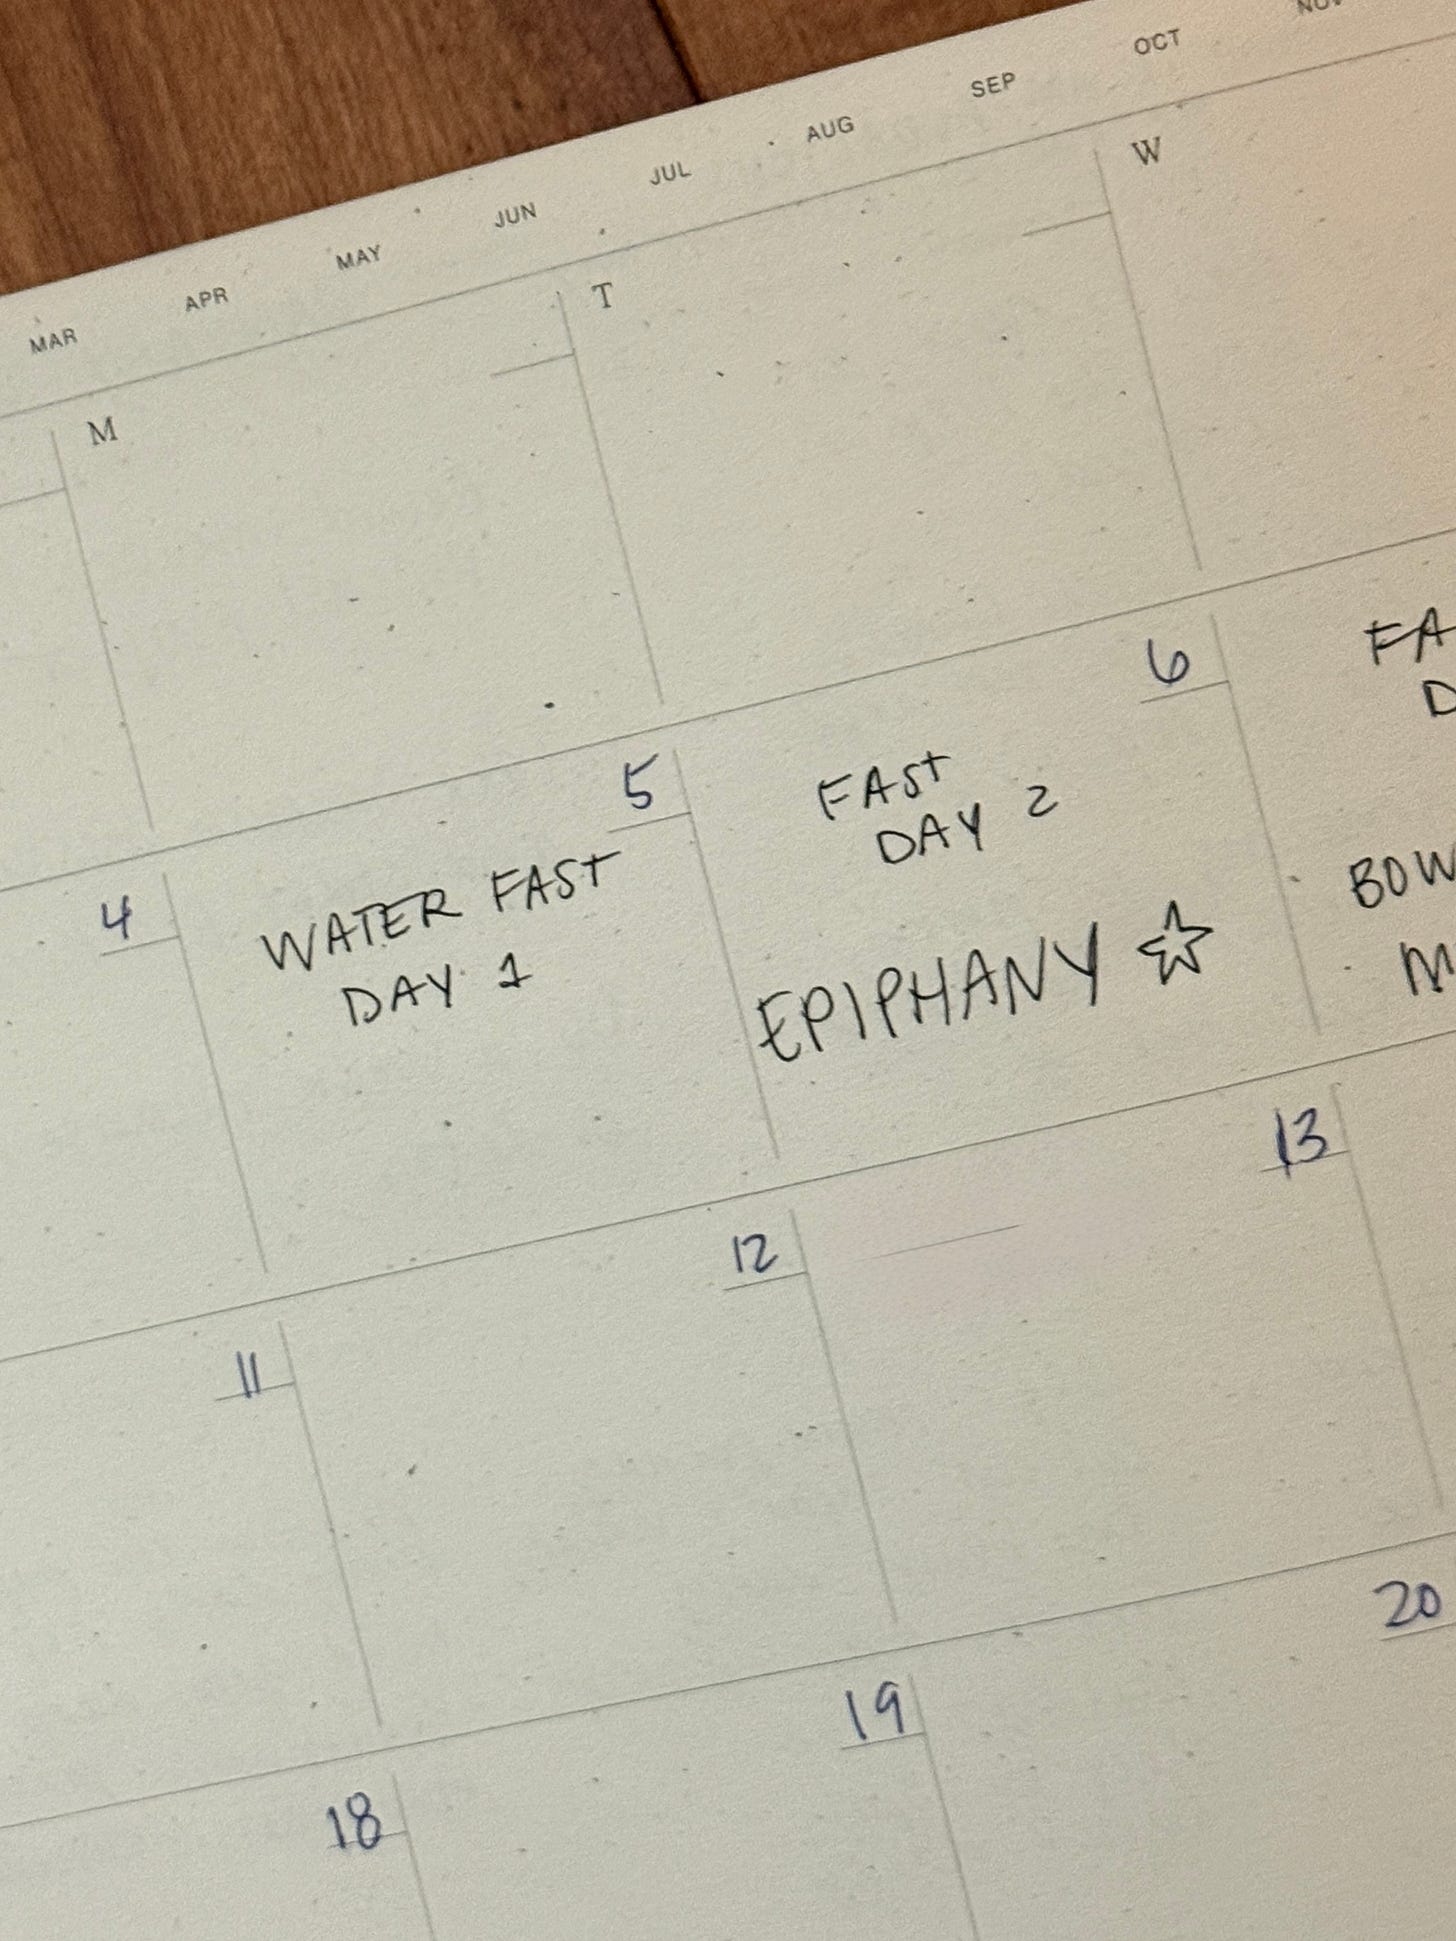 MAR APR MAY JUN JUL AUG SEP OCT
M T W
4 5 6
WATER FAST
DAY 1
FAST
DAY 2
EPIPHANY
11 12 13
18 19 20